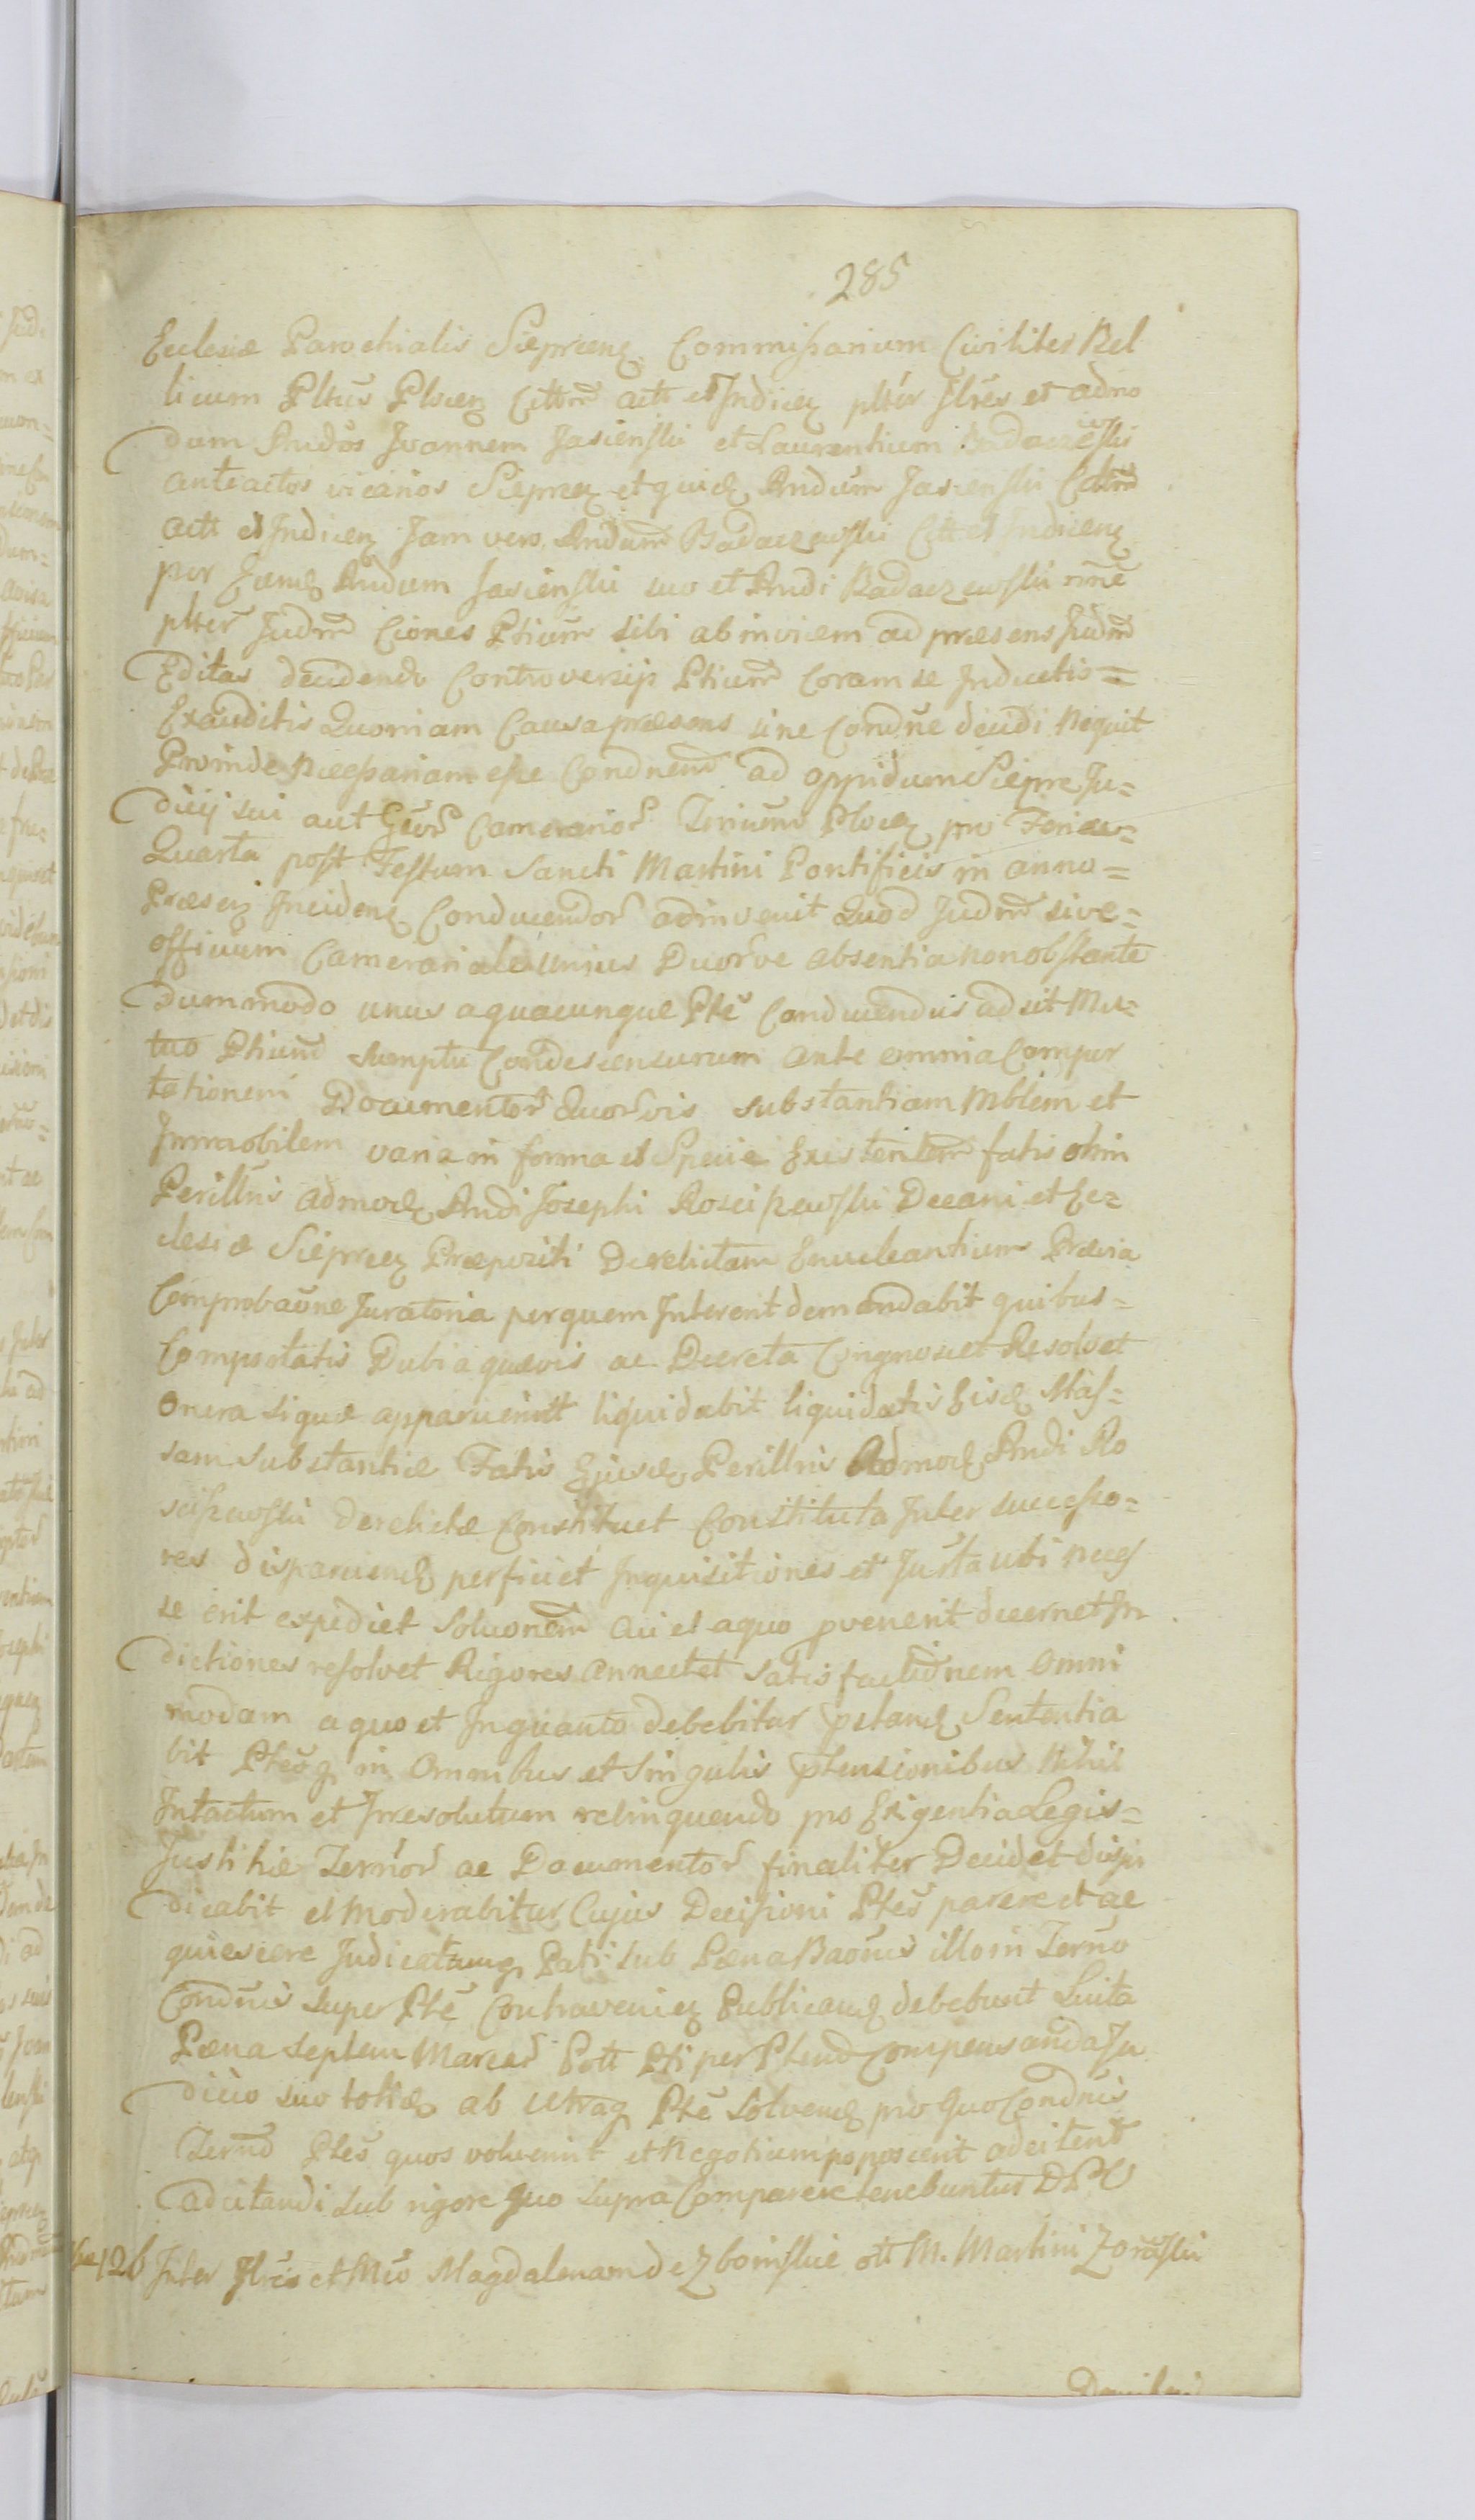 285
Ecclesiæ Parochialis Sieprcen Commissarium Civiliter Bel
licum Pltus Plocen Cittm act et Indicen plter Illres et admo
dum Rndos Joannem Jasienski et Laurentium Badaczewski
anteactos vicarios Sieprcen et quid Rndum Jasienski Cittm
act et Indicen Jam vero Rndum Badaczewski Citt et Indicen
per Eund Rndum Jasienski suo et Rndi Badaczewski nne
plter Judm Ciones Ptium sibi ab invicem ad præsens Judm
Editas decidendo Controversijs Ptium coram se Inductis =
Exauditis Quoniam Causa præsens sine Condne decidi nequit
Proinde necessariam esse Condnem ad oppidum Sieprc Ju=
dicij sui aut Gnor Camerarior Terrium Plocen pro Feria
Quarta post Festum Sancti Martini Pontificis in anno =
Præsen Inciden Conducendor adinvenit Quod Judm sive =
officium Cameriale unius Duorve absentia non obstante
dummodo unus a quacunque Pte Conducendus adsit Mu=
tuo Ptium sumptu Condescensurum ante omnia Compor
tationem Documentor Quorvis substantiam Mblem et
Immobilem varia in forma et Specie Existentem fatis olim
Perillris admod Rndi Josephi Rosciszewski Decani et Ec=
clesiæ Sieprcen Præpositi Derelictam Enucleantium Prævia
Comprobaone Juratoria per quem Intererit demandabit quibus =
Comportatis Dubia quævis ac Decreta Congnoscet Resolvet
onera si quæ apparuerint liquidabit liquidatis Eisd Mas=
sam substantiæ Fatis Ejusd Perillris Admod Rndi Ro
sciszewski derelictæ Constituet Constituta Inter successo=
res dispartiend perficiet Inquisitiones et Jurta ubi neces
se erit expediet Soluonem cui et a quo pvenerit decernet In
dictiones resolvet Rigores annectet satisfactionem omni
modam a quo et Inquanto debebitur pstand Sententia
bit Ptesq in omnibus et singulis ptensionibus Nihil
Intactum et Irresolutum relinquendo pro Exigentia Legis =
Justitiæ Termor ac Documentor finaliter Decidet dijju
dicabit et Moderabitur Cujus Decisioni Ptes parere et ac
quiescere Judicatumq Pati sub Pæna Baonis illo in Terno
Condnis super Pte Contravenien Publicand debebunt Luita
Pæna septem Marcar Pott Pti per Ptend compensanda Ju
dicio suo tottid ab utraq Pte Solvend pro quo Condnis
Termo Ptes quos voluerint et Negotium poposcerit adcitent
adcitandi sub rigore quo supra Comparere tenebuntur DPV
126 Inter Illres et Mcos Magdalenam de Zboinskie ott M. Martini Zorawski